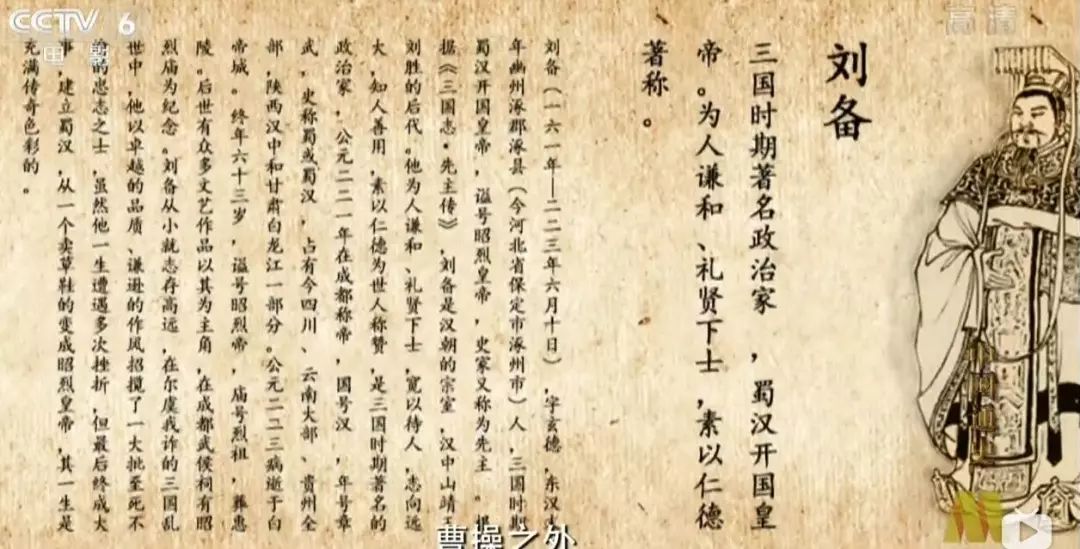 CCTV 6
高清
刘备
三国时期著名政治家，蜀汉开国皇
帝。为人谦和、礼贤下士，素以仁德
著称。
刘备（一六一年—二二三年六月十日），字玄德，东汉末
年幽州涿郡涿县（今河北省保定市涿州市）人，三国时期
蜀汉开国皇帝，谥号昭烈皇帝，史家又称为先主。根
据《三国志·先主传》，刘备是汉朝的宗室，汉中山靖王
刘胜的后代。他为人谦和、礼贤下士，宽以待人，志向远
大，知人善用，素以仁德为世人称赞，是三国时期著名的
政治家，公元二二一年在成都称帝，国号汉，年号章
武，史称蜀或蜀汉，占有今四川、云南大部、贵州全
部，陕西汉中和甘肃白龙江一部分。公元二二三病逝于白
帝城。终年六十三岁，谥号昭烈帝，庙号烈祖，葬惠
陵。后世有众多文艺作品以其为主角，在成都武侯祠有昭
烈庙为纪念。刘备从小就志存高远，在尔虞我诈的三国乱
世中，他以卓越的品质、谦逊的作风招揽了一大批至死不
的忠志之士，虽然他一生遭遇多次挫折，但最后终成大
事，建立蜀汉，从一个卖草鞋的变成昭烈皇帝，其一生是
充满传奇色彩的。
曹操之外